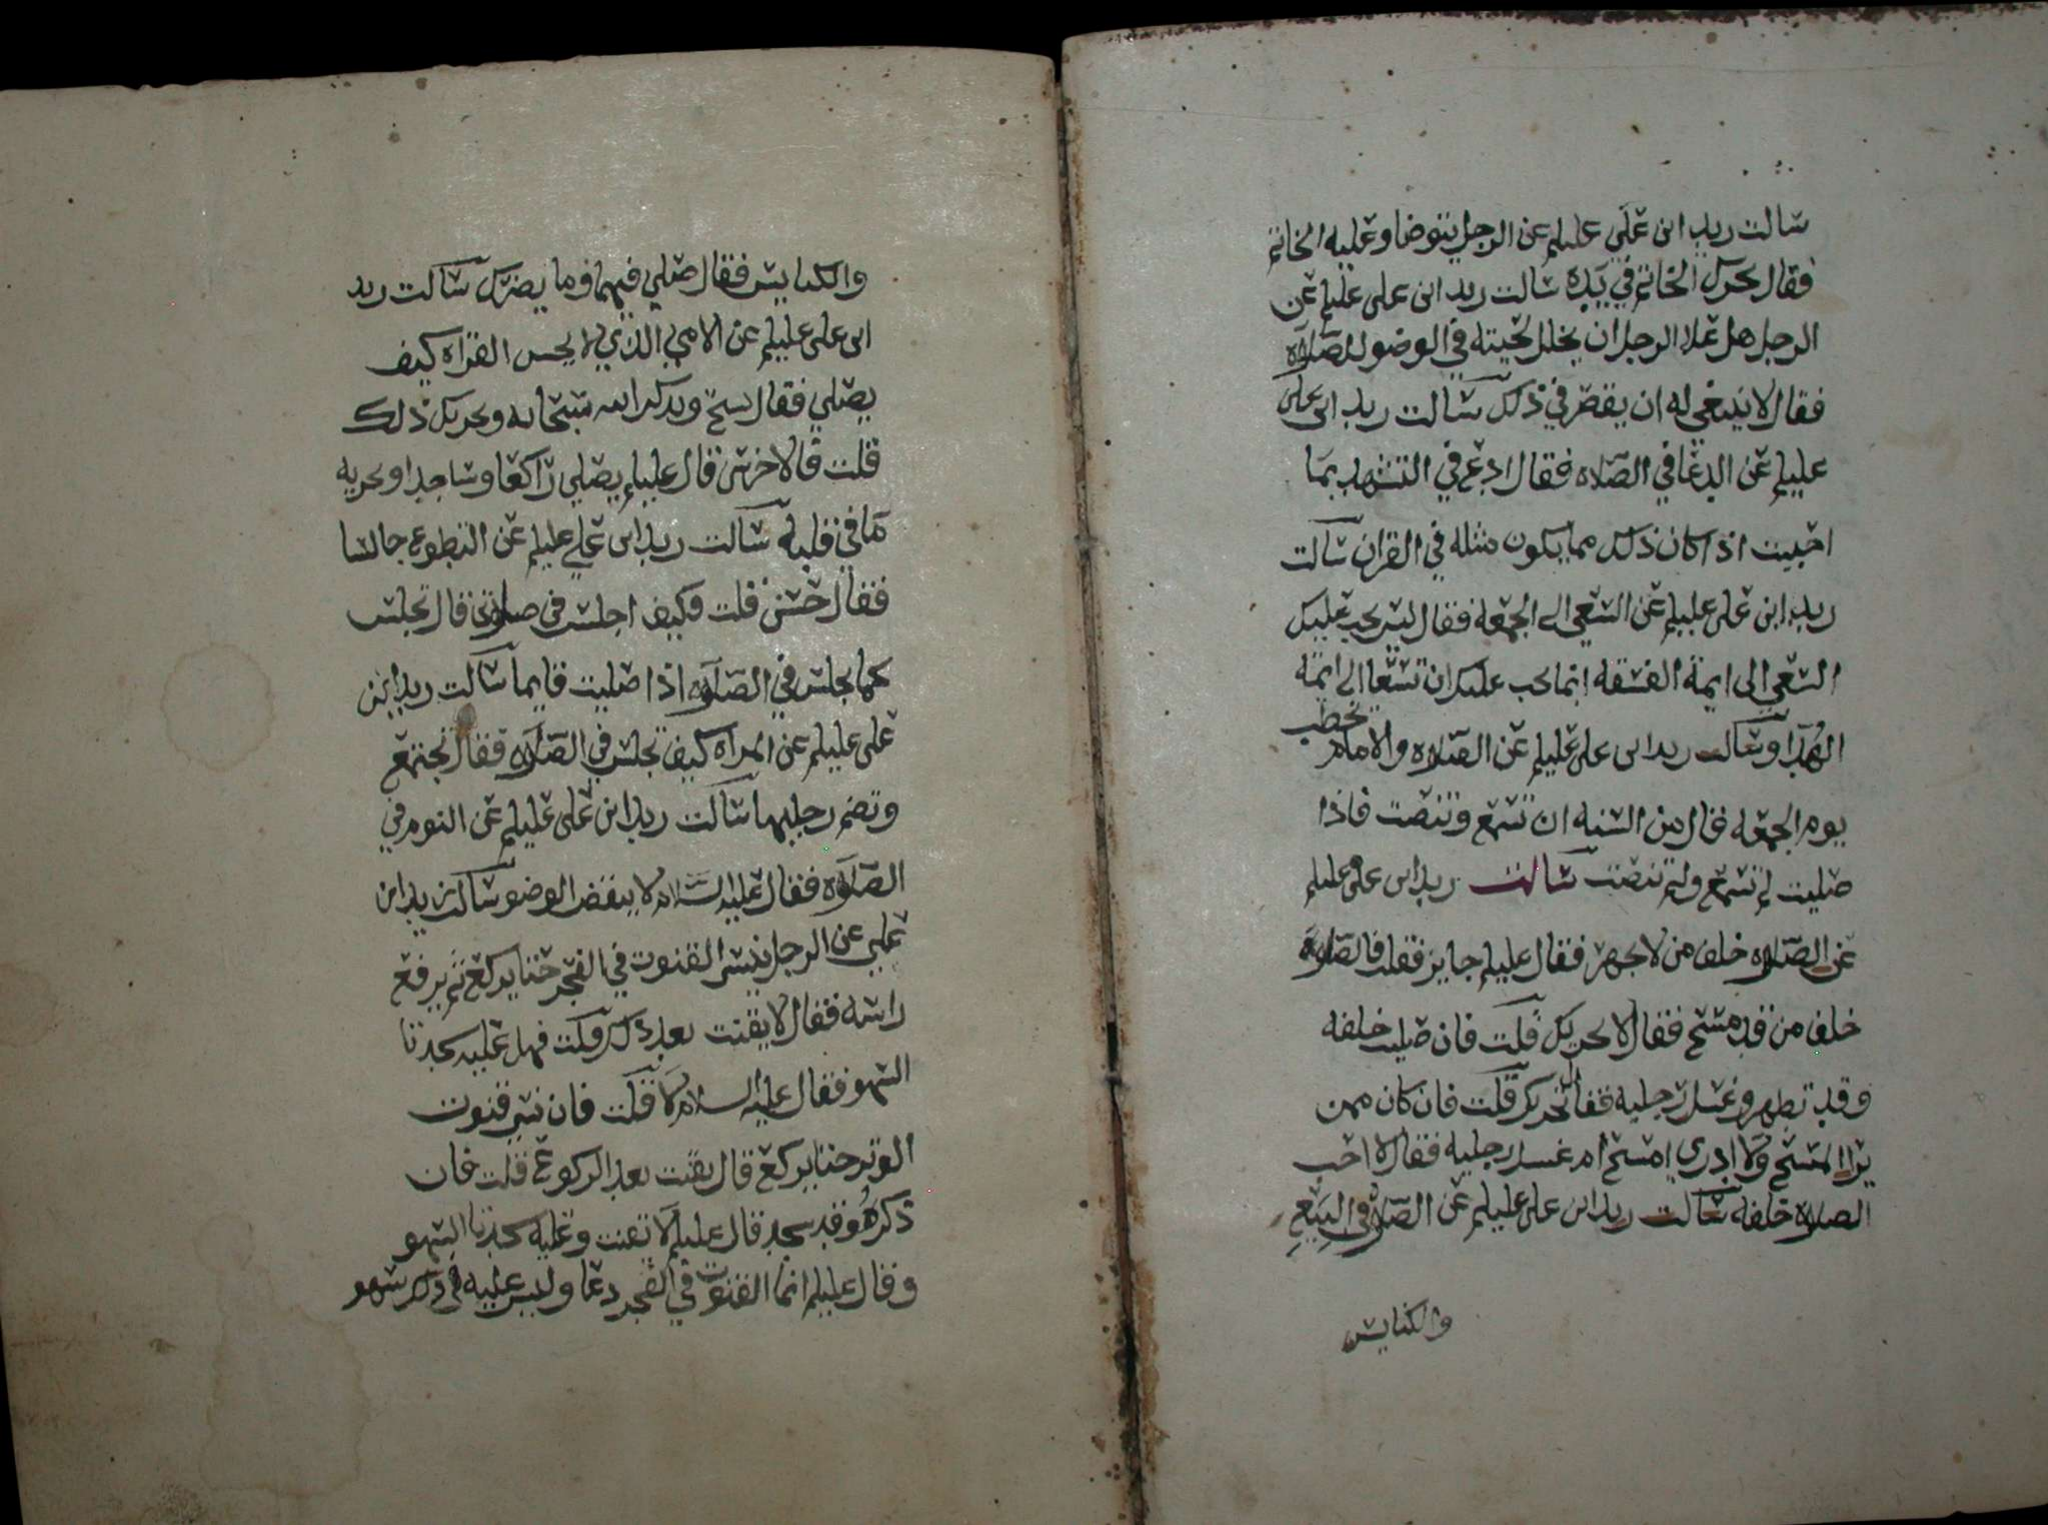 سالت زيد ابن علي عليلم عن الرجل يتوضا وعليه الخاتم
فقال يحرك الخاتم في يده سالت زيد ابن علي عليلم عن
الرجل هل علا الرجل ان يخلل لحيته في الوضو للصلاه
فقال لا ينبغي له ان يقصر في ذلك سالت زيد ابن علي
عليلم عن الدعا في الصلاه فقال ادع في التشهد بما
احببت اذا كان ذلك مما يكون مثله في القران سالت
زيد ابن علي عليلم عن السعي الى الجمعه فقال ليس يجب عليك
السعي الى ايمة الفسقه انما يجب عليك ان تسعا الى ايمة
الهدا وسالت زيد ابن علي عليلم عن الصلاه والامام يخطب
يوم الجمعه فقال من السنه ان تسمع وتنصت فاذا
صليت لم تسمع ولم تنصت سالت زيد ابن علي عليلم
عن الصلاه خلف من لا يجهر فقال عليلم جايز فقلت فالصلاه
خلف من قد مسح فقال لا يجزيك قلت فان صليت خلفه
وقد تطهر وغسل رجليه فقال تجزيك قلت فان كان ممن
يرا المسح ولا ادري امسح ام غسل رجليه فقال لا احب
الصلاه خلفه سالت زيد ابن علي عليلم عن الصلاه في البيع
والكنايس
والكنايس فقال صلي فيهما وما يضرك سالت زيد
ابن علي عليلم عن الامي الذي لا يحسن القراه كيف
يصلي فقال يسبح ويذكر الله سبحانه ويجزيك ذلك
قلت فالاخرس قال عليلم يصلي راكعا وساجدا ويجزيه
ما في قلبه سالت زيد ابن علي عليلم عن التطوع جالسا
فقال حسن قلت فكيف اجلس في صلاتي قال تجلس
كما تجلس في الصلاه اذا صليت قايما سالت زيد ابن
علي عليلم عن المراه كيف تجلس في الصلاه فقال تجتمع
وتضم رجليها سالت زيد ابن علي عليلم عن النوم في
الصلاه فقال عليه السلام لا ينقض الوضو سالت زيد ابن
علي عن الرجل ينسى القنوت في الفجر حتا يركع ثم يرفع
راسه فقال لا يقنت بعد ذلك قلت فهل عليه سجدتا
السهو فقال عليه السلام لا قلت فان نسي قنوت
الوتر حتا يركع قال يقنت بعد الركوع قلت فان
ذكره وقد سجد قال عليلم لا يقنت وعليه سجدتا السهو
وقال عليلم انما القنوت في الفجر دعا وليس عليه في ذلك سهو